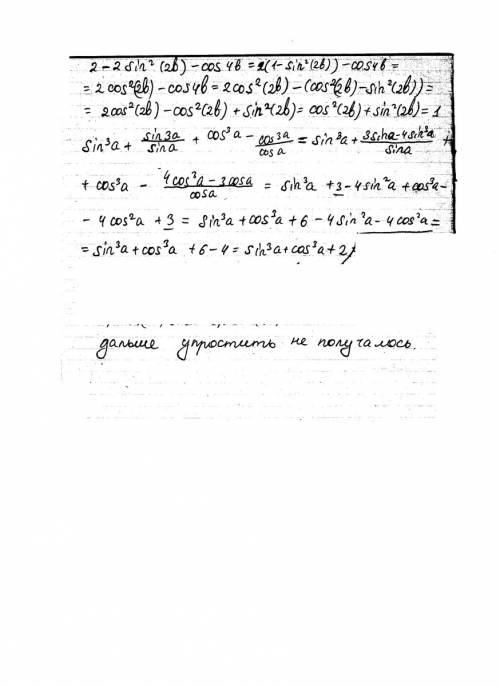 2 - 2 sin² (2b) - cos 4b = 2(1 - sin² (2b)) - cos 4b =
= 2 cos² (2b) - cos 4b = 2 cos² (2b) - (cos² (2b) - sin² (2b)) =
= 2cos² (2b) - cos² (2b) + sin² (2b) = cos² (2b) + sin² (2b) = 1
sin³a + sin3a/sina + cos³a - cos3a/cosa = sin³a + 3sina - 4sin³a/sina +
+ cos³a - 4cos³a - 3cosa/cosa = sin³a + 3 - 4sin²a + cos³a -
- 4cos²a + 3 = sin³a + cos³a + 6 - 4sin²a - 4cos²a =
= sin³a + cos³a + 6 - 4 = sin³a + cos³a + 2
дальше упростить не получалось.